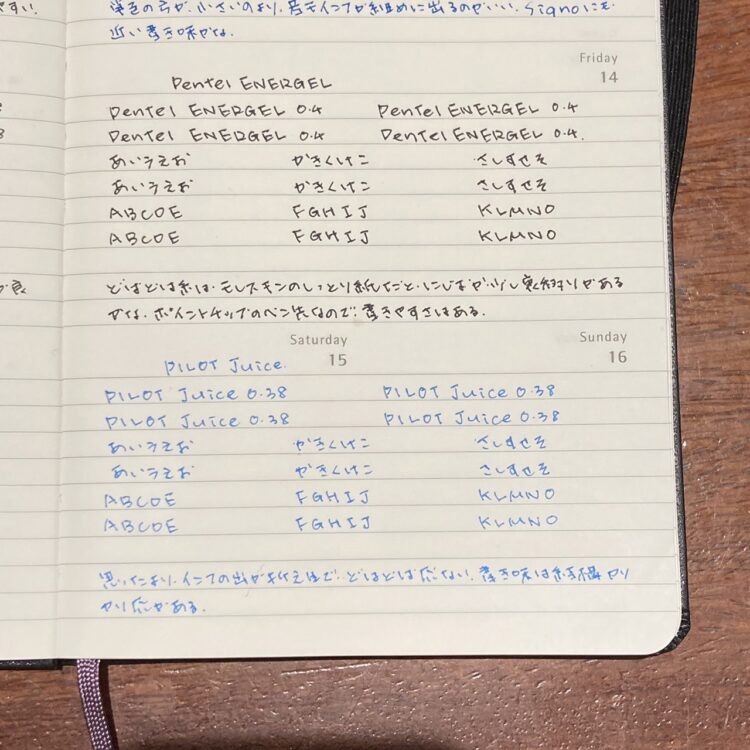 近い書き味かな。
Friday
14
Pentel ENERGEL
Pentel ENERGEL 0.4 Pentel ENERGEL 0.4
Pentel ENERGEL 0.4 Pentel ENERGEL 0.4.
あいうえお かきくけこ さしすせそ
あいうえお かきくけこ さしすせそ
ABCDE FGHIJ KLMNO
ABCDE FGHIJ KLMNO
どばどば系は、モレスキンのしっとり紙だと、にじむか、少し裏移りがある
かな。ポイントチップのペン先なので、書きやすさはある。
Saturday
15
Sunday
16
PILOT Juice.
PILOT Juice 0.38 PILOT Juice 0.38
PILOT Juice 0.38 PILOT Juice 0.38
あいうえお かきくけこ さしすせそ
あいうえお かきくけこ さしすせそ
ABCDE FGHIJ KLMNO
ABCDE FGHIJ KLMNO
思ったより、インクの出が控えめで、どばどば感ない。書き味は結構カリ
カリ感がある。